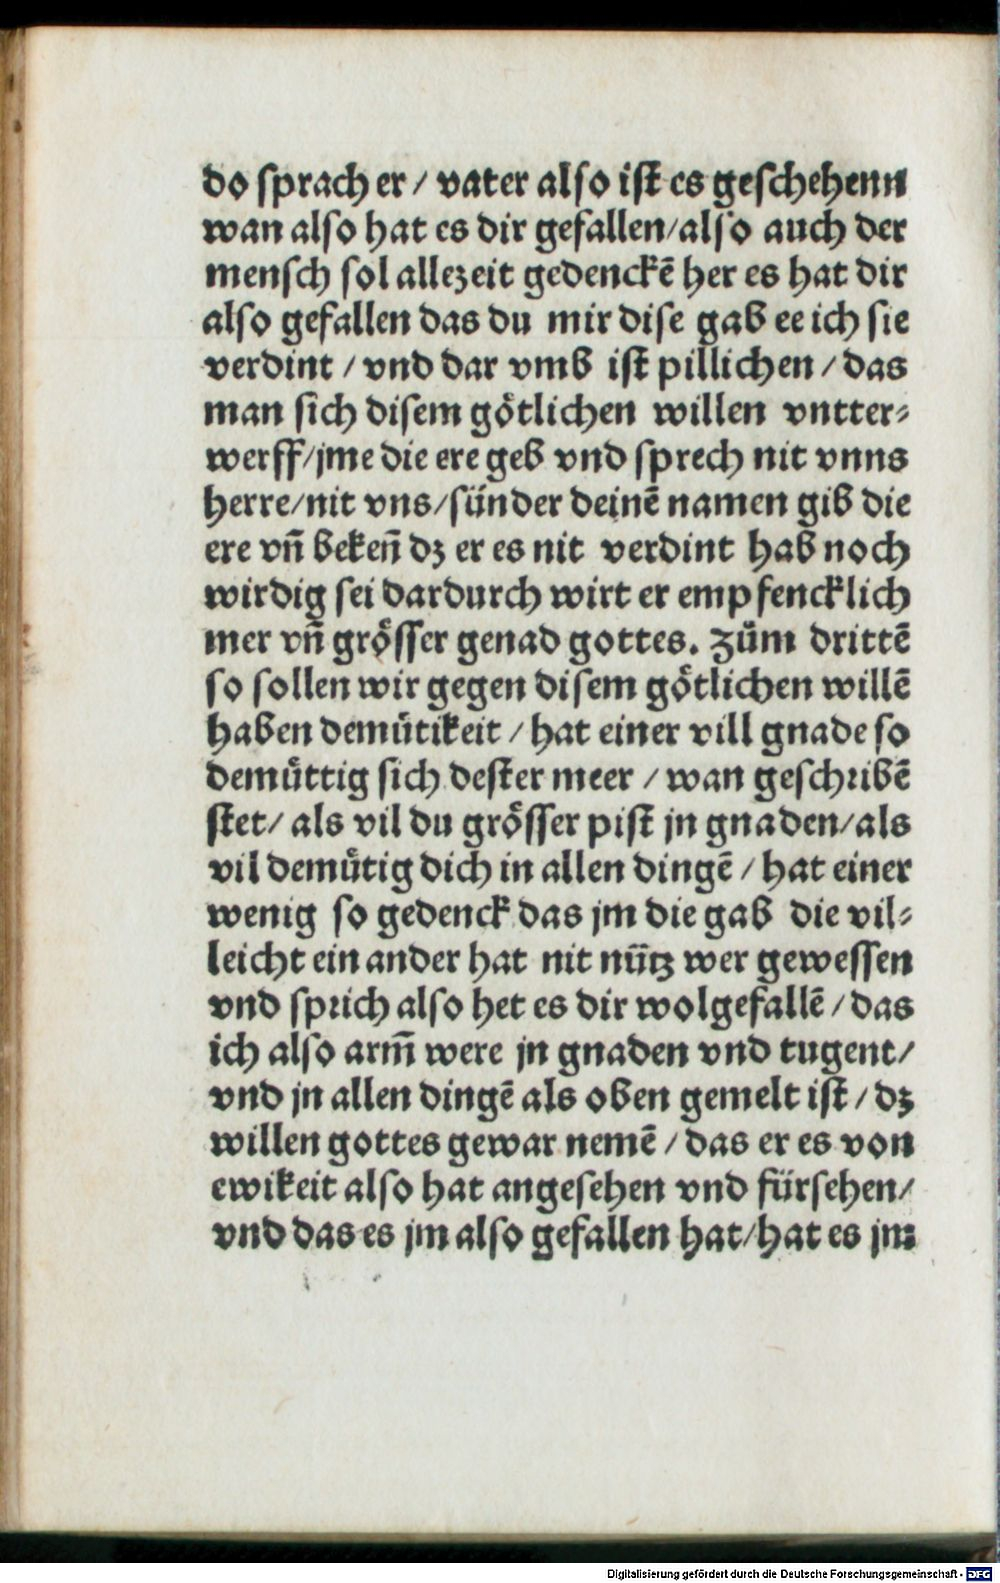 do sprach er / vater also ist es geschehenn
wan also hat es dir gefallen/also auch der
mensch sol allezeit gedenckē her es hat dir
also gefallen das du mir dise gab ee ich sie
verdint / vnd dar vmb ist pillichen / das
man sich disem götlichen willen vntter⸗
werff/jme die ere geb vnd sprech nit vnns
herre/nit vns/sünder deinē namen gib die
ere vn̄ beken̄ dz er es nit verdint hab noch
wirdig sei dardurch wirt er empfencklich
mer vn̄ grösser genad gottes. Zům drittē
so sollen wir gegen disem götlichen willē
haben demütikeit / hat einer vill gnade so
demüttig sich dester meer / wan geschribē
stet/ als vil du grösser pist jn gnaden/als
vil demütig dich in allen dingē / hat einer
wenig so gedenck das jm die gab die vil⸗
leicht ein ander hat nit nütz wer gewessen
vnd sprich also het es dir wolgefallē / das
ich also arm̄ were jn gnaden vnd tugent/
vnd jn allen dingē als oben gemelt ist / dz
willen gottes gewar nemē / das er es von
ewikeit also hat angesehen vnd fürsehen/
vnd das es jm also gefallen hat/hat es jn:
Digitalisierung gefördert durch die Deutsche Forschungsgemeinschaft - DFG